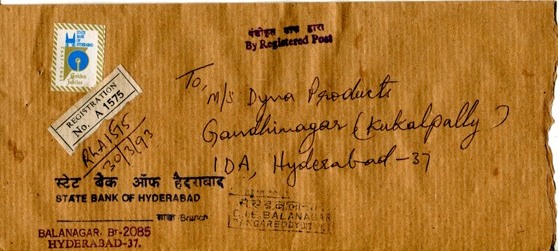 पंजीकृत डाक द्वारा
By Registered Post
STATE BANK
OF HYDERABAD
Golden
Jubilee
REGISTRATION
No. A 1575
RLA1575
30/3/93
To,
M/s Dyna Products
Gandhinagar (Kukalpally)
IDA, Hyderabad-37
स्टेट बैंक ऑफ हैदराबाद
STATE BANK OF HYDERABAD
शाखा/Branch
BALANAGAR. Br-2085
HYDERABAD-37.
I.E. BALANAGAR